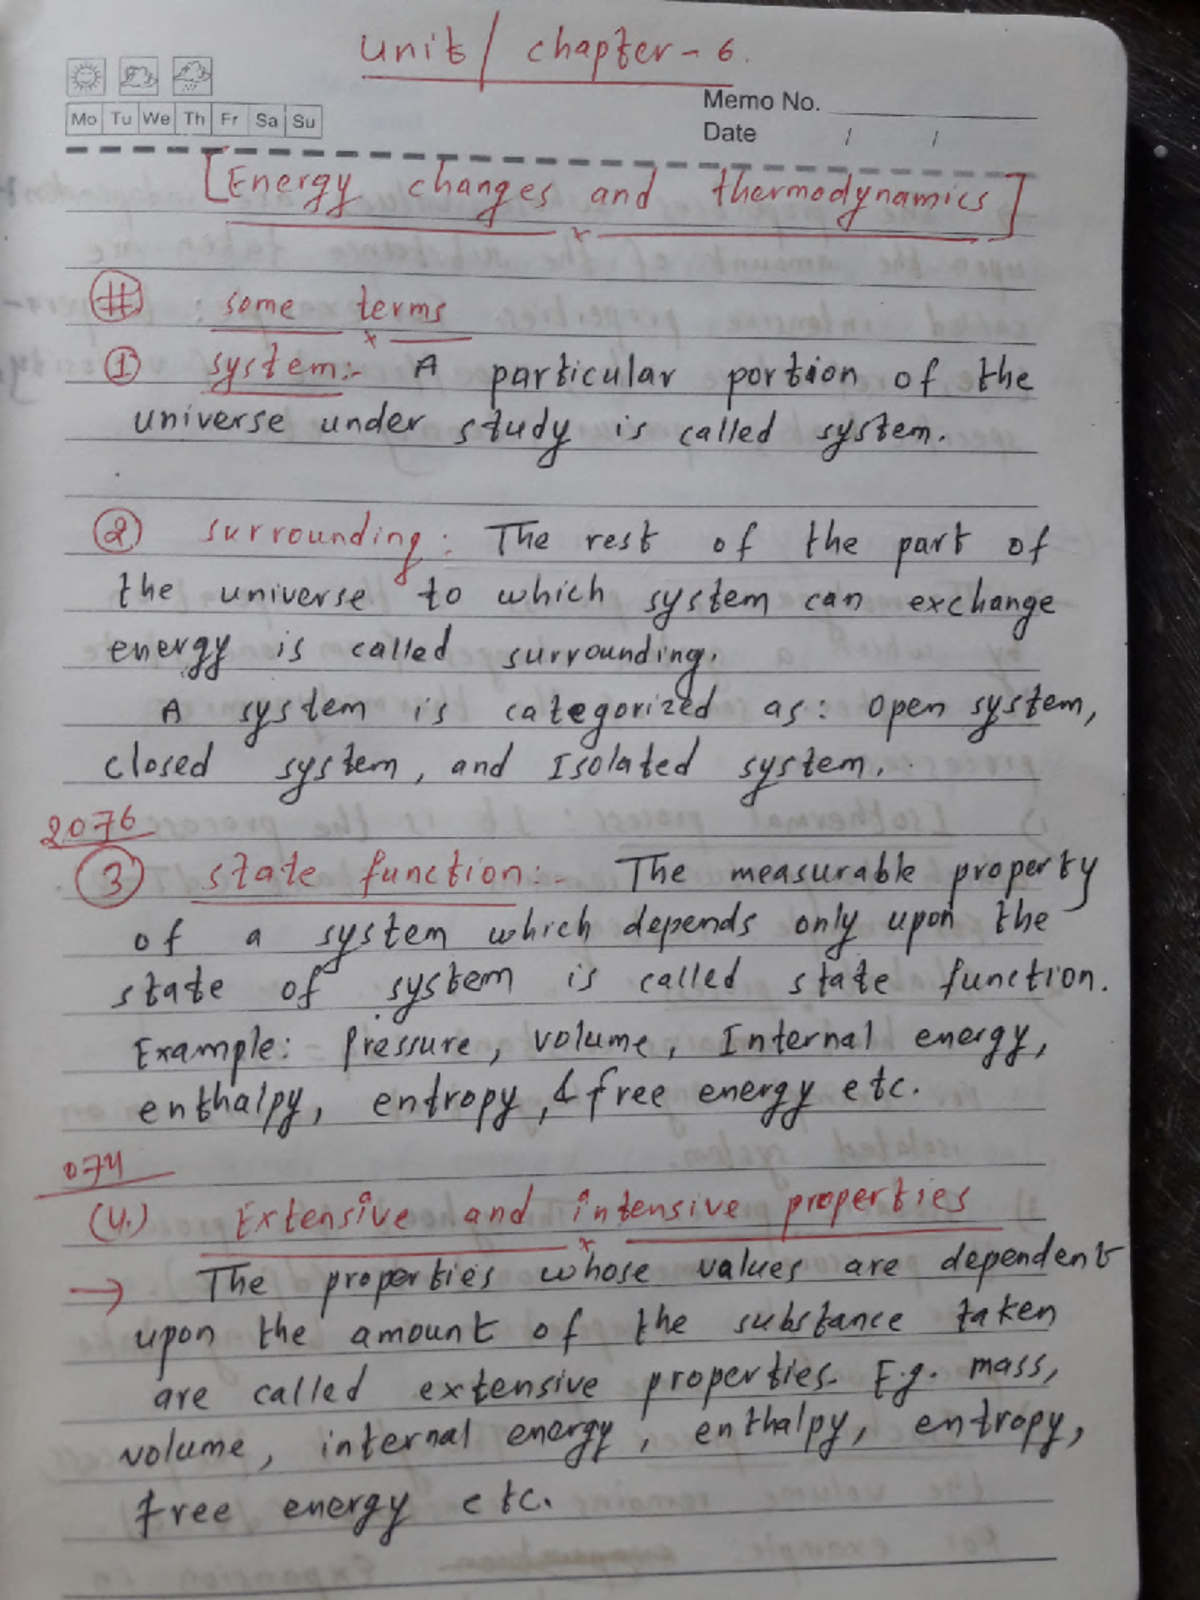 unit/ chapter-6.
Mo Tu We Th Fr Sa Su
Memo No.
Date / /
[Energy changes and thermodynamics]
# some terms
1 system:- A particular portion of the
universe under study is called system.
2 surrounding: The rest of the part of
the universe to which system can exchange
energy is called surrounding.
A system is categorized as: open system,
closed system, and Isolated system.
2076
3 state function:- The measurable property
of a system which depends only upon the
state of system is called state function.
Example: Pressure, volume, Internal energy,
enthalpy, entropy, & free energy etc.
074
(4.) Extensive and intensive properties
→ The properties whose values are dependent
upon the amount of the substance taken
are called extensive properties. E.g. mass,
volume, internal energy, enthalpy, entropy,
free energy etc.